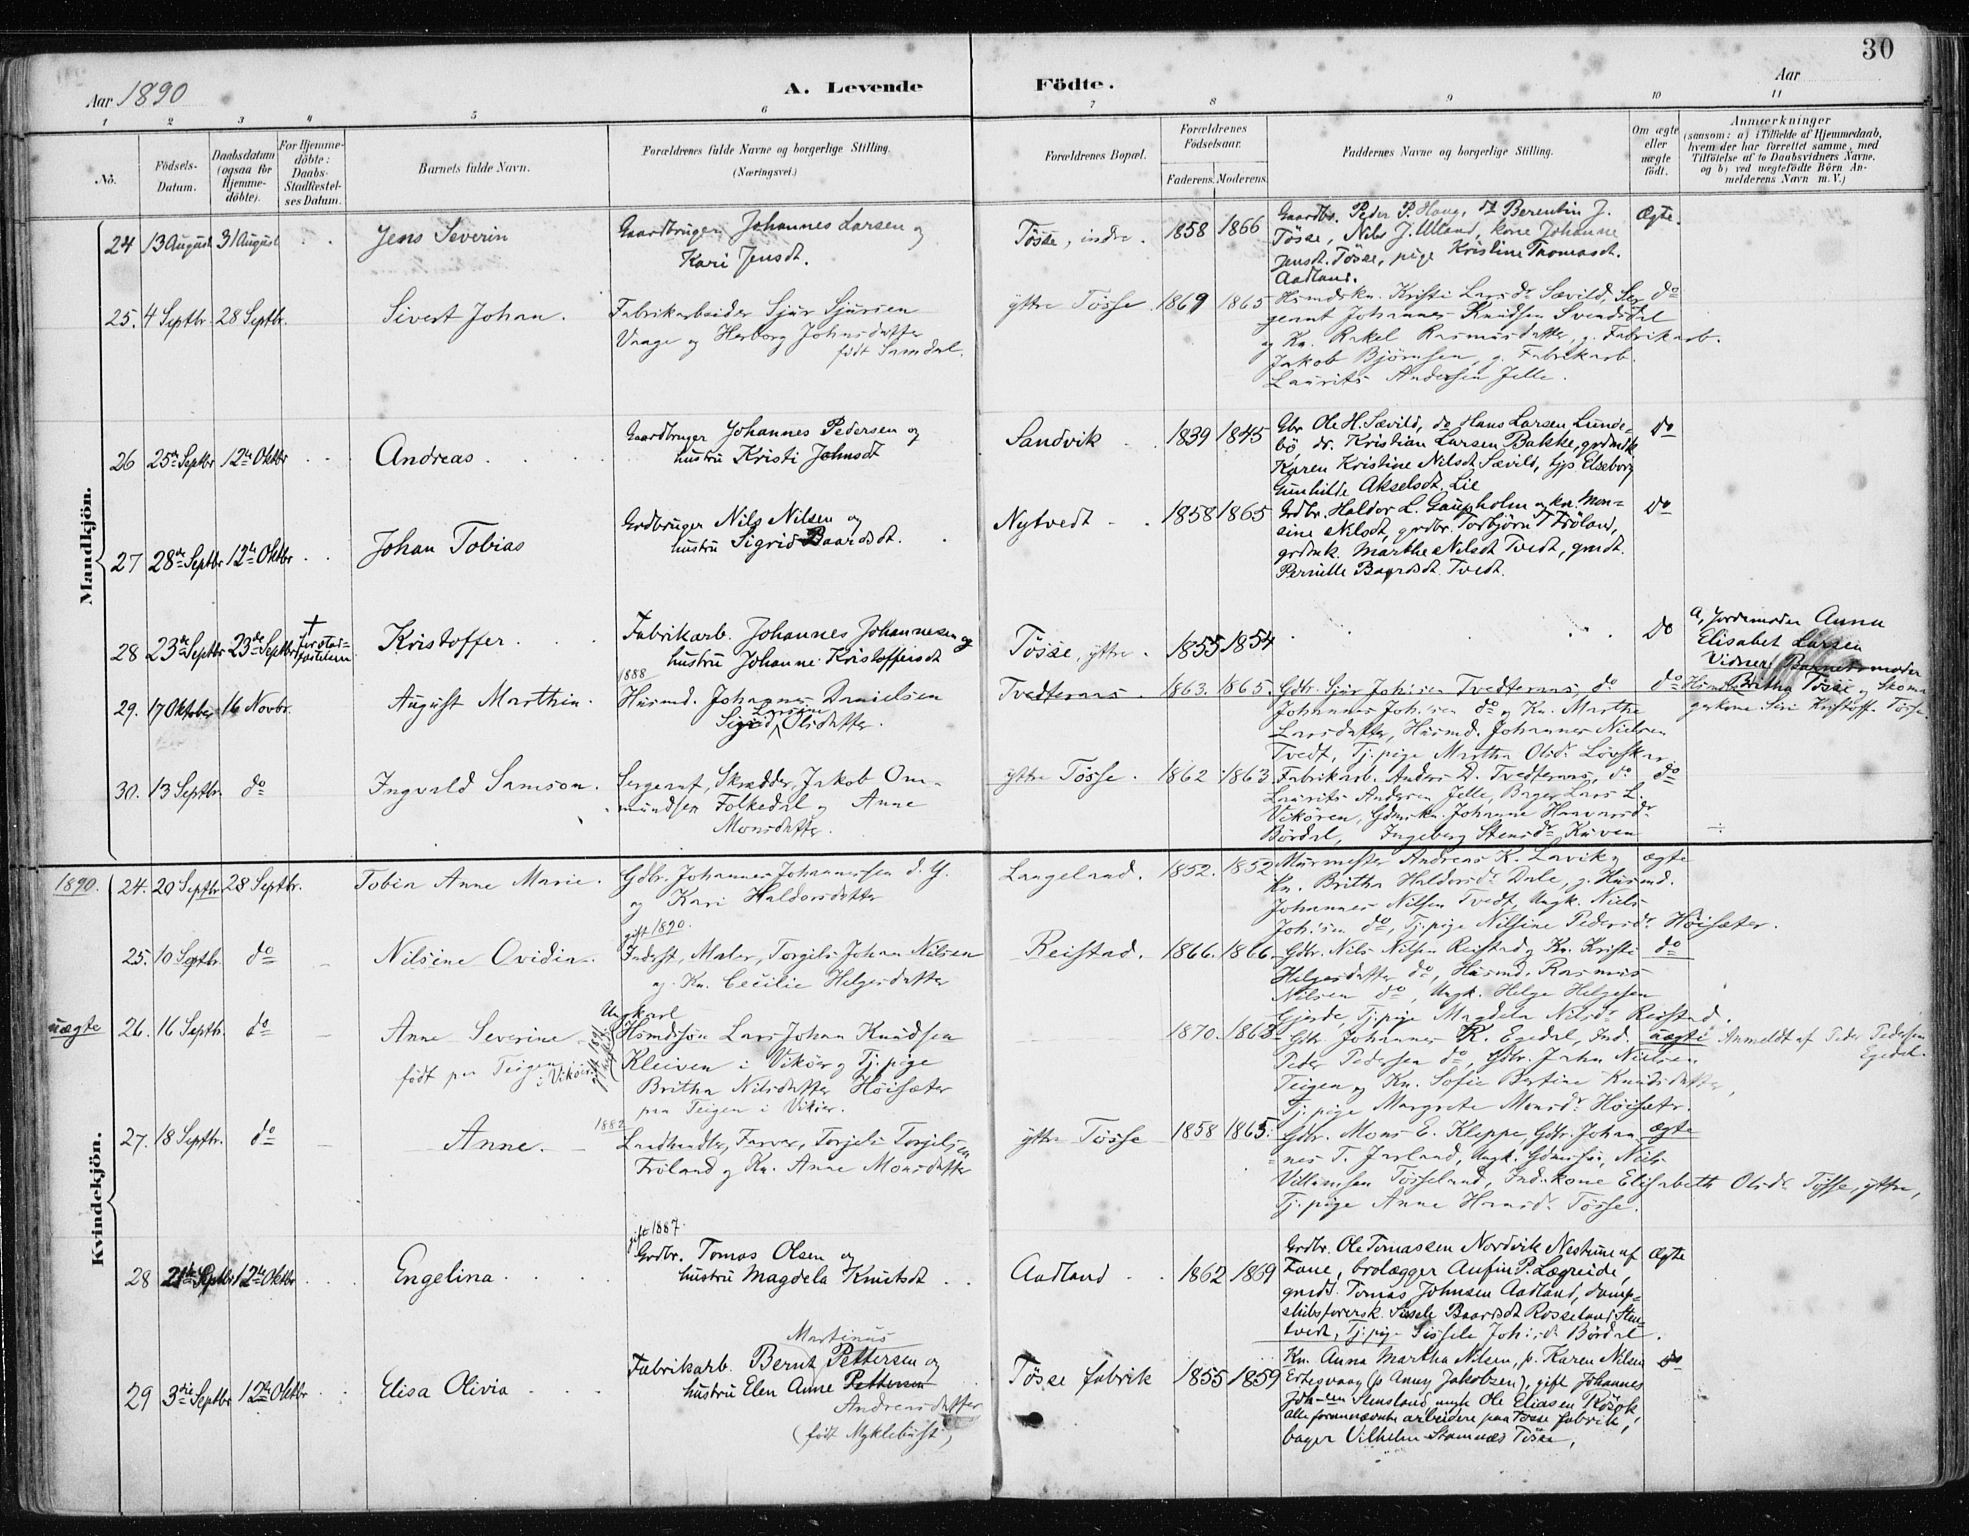 30
Aar 1890
A. Levende Födte.
Aar
1 2 3 4 5 6 7 8 9 10 11
No.
Födsels-Datum.
Daabsdatum (ogsaa for Hjemme-döbte).
For Hjemme-döbte: Daabs-Stadfæstel-ses Datum.
Barnets fulde Navn.
Forældrenes fulde Navne og borgerlige Stilling.
(Næringsvei.)
Forældrenes Bopæl.
Forældrenes Födselsaar.
Faderens. Moderens.
Faddernes Navne og borgerlige Stilling.
Om ægte eller uægte födt.
Anmærkninger
(saasom: a) i Tilfælde af Hjemmedaab,
hvem der har forrettet samme, med
Tilföielse af to Daabsvidners Navne,
og b) ved uægtefödte Börn An-
melderens Navn m. V.)
Mandkjön.
24 13 August 31 August
Jens Severin
Gaardbruger Johannes Larsen og
Kari Jensdt.
Tösse, indre. 1858 1866
Gaardbr. Peder P. Haug, do Berentin J.
Tösse, Nils J. Utland, kone Johanne
Jensdt. Tösse, pige Kristine Thomasdt.
Aadland.
Ægte.
25. 4 Septbr. 28 Septbr.
Sivert Johan.
Fabrikarbeider Sjur Sjursen
Vaage og Herborg Johnsdatter
født Samdal.
yttre Tösse 1869 1865
Husmdskn. Kristi Larsdr Sævild, Ser-
geant Johannes Knudsen Svendsdal
og Kn. Rakel Rasmusdatter, g. Fabrikarb.
Jakob Björnsen, g. Fabrikarb.
Laurits Andersen Jelle.
do
26 25de Septbr 12te Oktbr
Andreas
Gaardbruger Johannes Pedersen og
hustru Kristi Johnsdt
Sandvik 1839 1845
Gbr. Ole H. Sævild, do Hans Larsen Lunde-
bö, do. Kristian Larsen Bakke, grdmdk
Karen Kristine Nilsdt Sævild, tjp Elseborg
Gunhilde Akselsdt. Lie
do
27 28de Septbr 12te Oktbr
Johan Tobias
Grdbruger Nils Nilsen og
hustru Sigrid Baardsdt.
Nytvedt 1858 1865
Grdbr. Haldor L. Gaupholm og kn. Mon-
sine Nilsdt, grdbr. Torbjörn T Fröland,
grdmk. Marthe Nilsdt Tvedt, gmdt.
Pernille Baardsdt. Tvedt.
do
28 23de Septbr 23de Septbr
Kristoffer
Fabrikarb. Johannes Johannesen og
hustru Johanne Kristoffersdt
Tösse, yttre. 1855 1854
do
a, Jordemoder Anna
Elisabet Larsen
Vidner: Barnets moder
Britha Tösse og
gerkone Siri Kristoff. Tösse.
29. 17 Oktober 16 Novbr.
August Marthin.
1888
Husmd. Johannes Danielsen
Larsine
Sigrid Olsdatter.
Tvedteraas 1863. 1865.
Gdbr. Sjur Johnsen Tvedteraas, do
Johannes Johnsen do og Kn. Marthe
Larsdatter, Husmd. Johannes Nielsen
Tvedt, Tj.pige Martha Olsdr Lövskar
do
30. 13 Septbr. do
Ingvald Samson.
Sergeant, Skrædder, Jakob Om-
mundsen Folkedal og Anne
Monsdatter.
yttre Tösse. 1862 1863
Fabrikarb. Anders D. Tvedteraas, do
Laurits Andersen Jelle, Bager Lars L.
Vikören, Gdmskn. Johanne Haavarsdr
Bördal, Ingeborg Stensdr Kuven
do
÷
Kvindekjön.
1890. 24. 20 Septbr 28 Septbr.
Tobia Anne Marie.
Gdbr. Johannes Johannessen d. y.
og Kari Haldorsdatter
Langeland. 1852. 1852
Murmester Andreas K. Lavik og
Kn. Britha Haldorsdr Dale, g. Husmd.
Johannes Nilsen Tvedt, Ungk. Niels
Johnsen do, Tj.pige Nilsine Pedersdr Höisæter.
ægte
25. 10 Septbr. do
Nilsine Ovidia.
gift 1890.
Inderst, Maler, Torgils Johan Nilsen
og Kn. Cecilie Helgesdatter
Reistad. 1866. 1866.
Gdbr. Nils Nilsen Reistad og Kn. Kristi
Helgesdatter do, Husmd. Rasmus
Nilsen do, Ungk. Helge Helgesen
Gjerde, Tj.pige Magdela Nilsdr Reistad.
do
uægte 26. 16 Septbr. do
Anne Severine
født paa Teigen i Vikör.
Ungkarl
Husmdssøn Lars Johan Knudsen
Kleiven i Vikör og Tj.pige
Britha Nilsdatter Höisæter
paa Teigen i Vikör.
1870. 1868
Gdbr. Johannes K. Egedal, Ind.
Peder Pedersen do, Gdbr. John Nielsen
Teigen og Kn. Sofie Bertine Knudsdatter,
Tj.pige Margrete Monsdr Höisætr.
uægte
Anmeldt af Peder Pedersen
Egedal.
27. 18 Septbr. do
Anne.
1882
Landhandler, Farver, Torjels Torjelsen
Fröland og Kn. Anne Monsdatter
yttre Tösse 1858 1865.
Gdbr. Mons E. Kleppe, Gdbr. Johan-
nes T. Jarland, Ungk. Gdmssön, Niels
Villiamsen Tösseland, Ind.kone Elisabeth Olsdr Tösse, yttre,
Tj.pige Anne Hansdr Tösse.
ægte
28 21de Septbr 12te Oktbr
Engelina
gift 1887.
Grdbr. Tomas Olsen og
hustru Magdela Knutsdt
Aadland 1862 1869
Grdbr. Ole Tomassen Nordvik Nestune af
Fane, brolægger Anfin P. Lægreide,
gmdS. Tomas Johnsen Aadland, damp-
skibsförersk. Sissele Baardsdt Rosseland Sten-
tvedt, Tj.pige Sissele Johnsdr Bördal.
Ægte
29 3die Septbr 12te Oktbr
Elisa Olivia
Martinus
Fabrikarb. Bernt Pettersen og
hustru Elen Anne Pettersen
Andreasdatter
(født Myklebust,
Tösse fabrik 1855 1859
Kn. Anna Martha Nilsen, p. Karen Nilsen
Ertesvaag (p Anny Jakobsen), gift Johannes
Joh-sen Stensland, ungk Ole Eliasen Rösok,
alle forannævnte arbeidere paa Tösse fabrik,
bager Vilhelm Stamnæs Tösse,
do